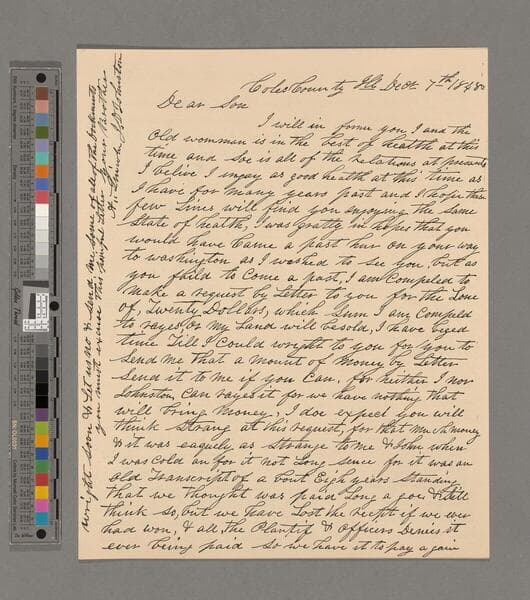 Coles County Ills Dect. 7th 1848
Dear Son
I will in forme you I and the
Old womman is in the best of health at this
time and so is all of the relations at present
I belive I injoy as good health at this time as
I have for many years past and I hope these
few lines will find you injoying the same
State of health, I was gratly in hopes that you
would have Came a past her on your way
to washington as I wished to see you, but as
you faild to Come a past, I am Compeled to
make a request by Letter to you for the Lone
of, Twenty Dollars, which Sum I am Compeld
to rayes, or my Land will be sold, I have beged
time Till I Could wright to you for you to
Send me that a mount of Money by Letter
Send it to me if you Can, for neither I nor
Johnston Can rayes it for we have nothing that
will bring money, I doe expect you will
think Strang at this request, for that Much money
& it was eaquely as Strange to me & John when
I was Cold on for it not Long Since for it was an
old Transcript of a bout Eigh years Standing
that we thought was paid Long a goe & I still
think So, but we have Lost the recept if we ever
had won, & all the Plantif & Officers Denies it
ever being paid so we have it to pay a gain
wright soon & Let us no & Send me some of all of the Dockuments
you must excuse this Letter
Your Brother
A. Lincoln J D Johnston